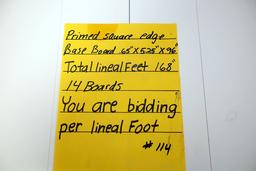 Primed square edge
Base Board .65"x5.25"x96"
Total lineal Feet 168"
14 Boards
You are bidding
per lineal Foot
#114